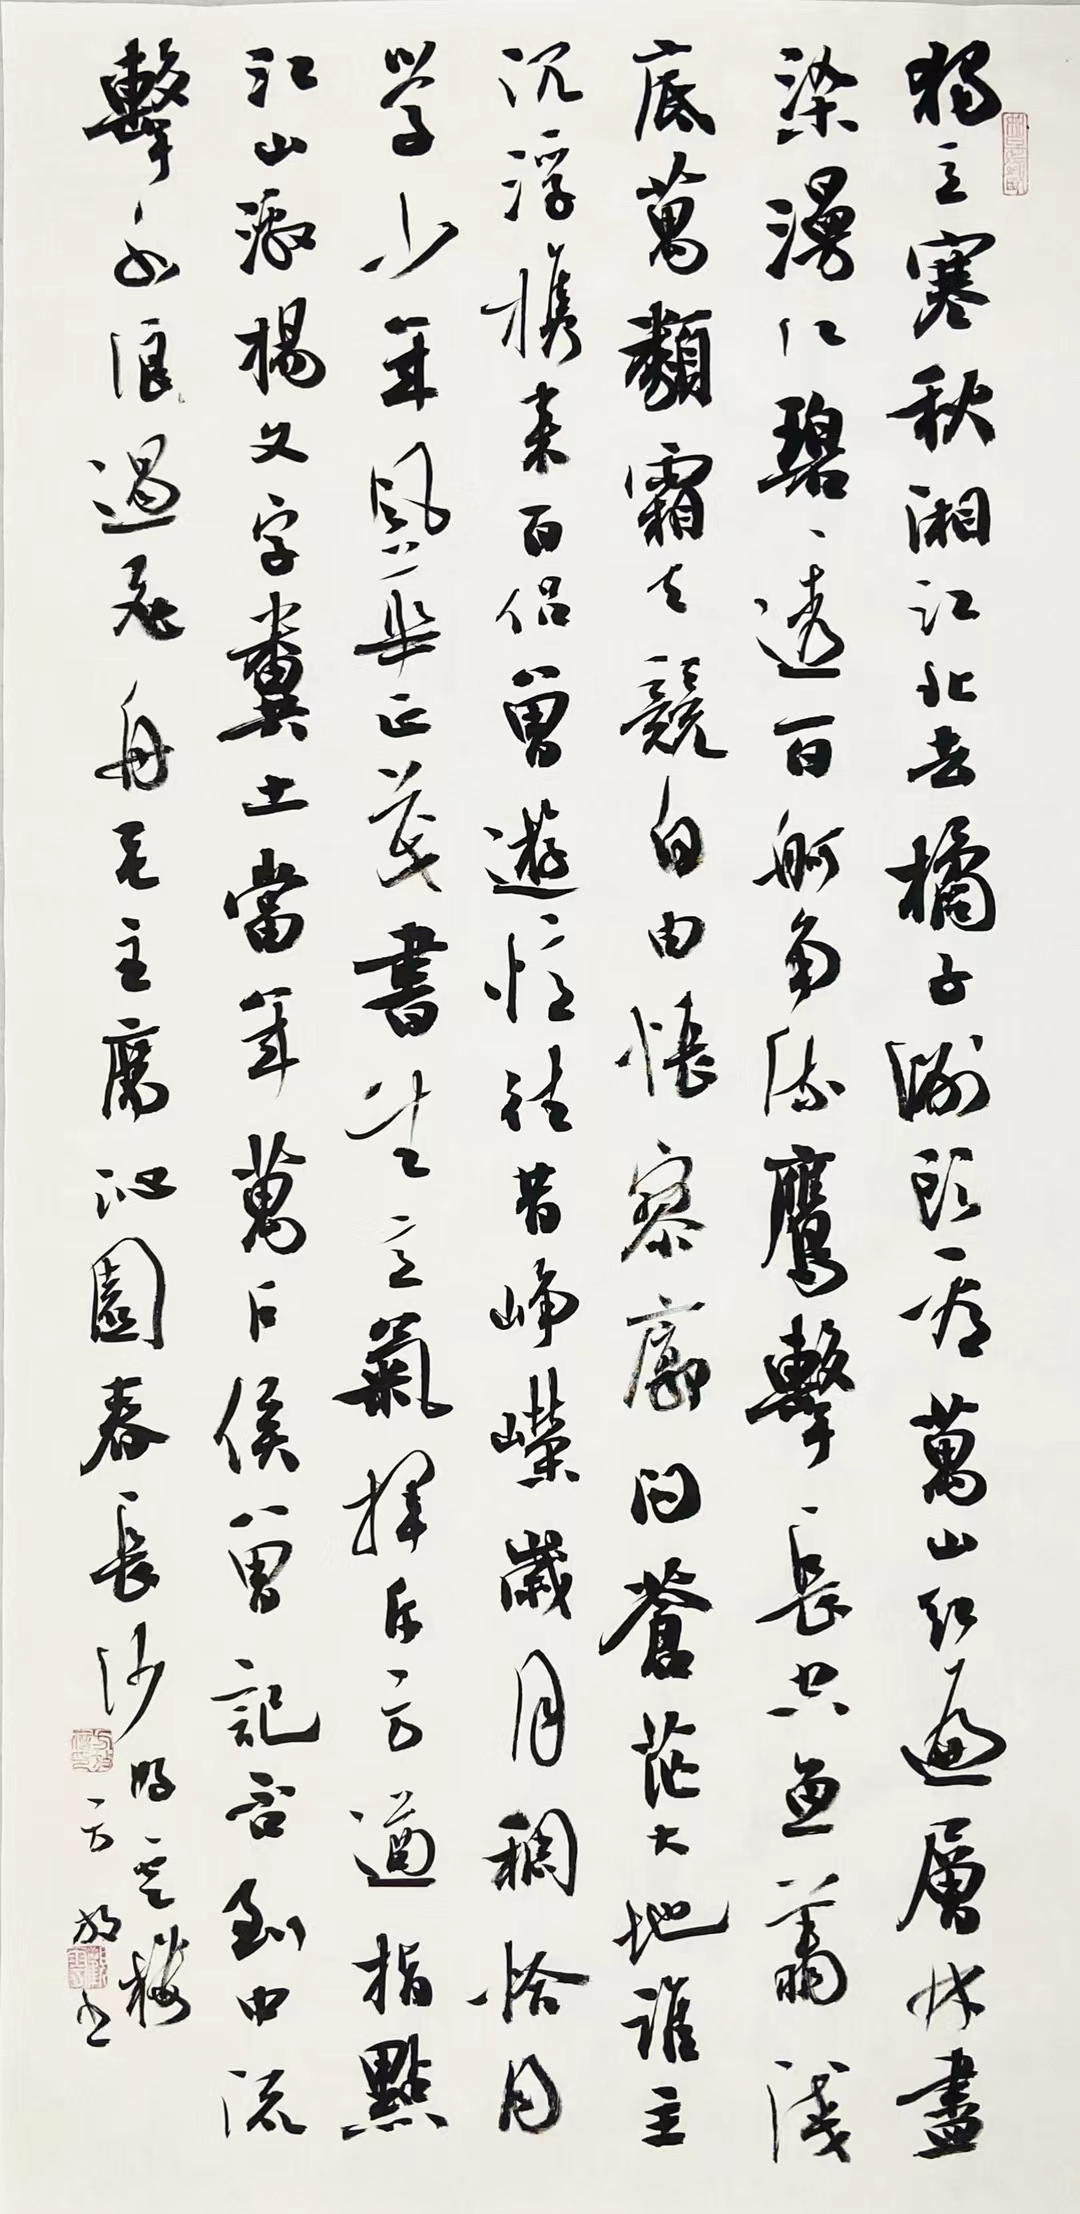 獨立寒秋湘江北去橘子洲頭看萬山紅遍層林盡
染漫江碧透百舸爭流鷹擊長空魚翔淺
底萬類霜天競自由悵寥廓問蒼茫大地誰主
沉浮攜來百侶曾遊憶往昔崢嶸歲月稠恰同
學少年風華正茂書生意氣揮斥方遒指點
江山激揚文字糞土當年萬戶侯曾記否到中流
擊水浪遏飛舟毛主席沁園春長沙